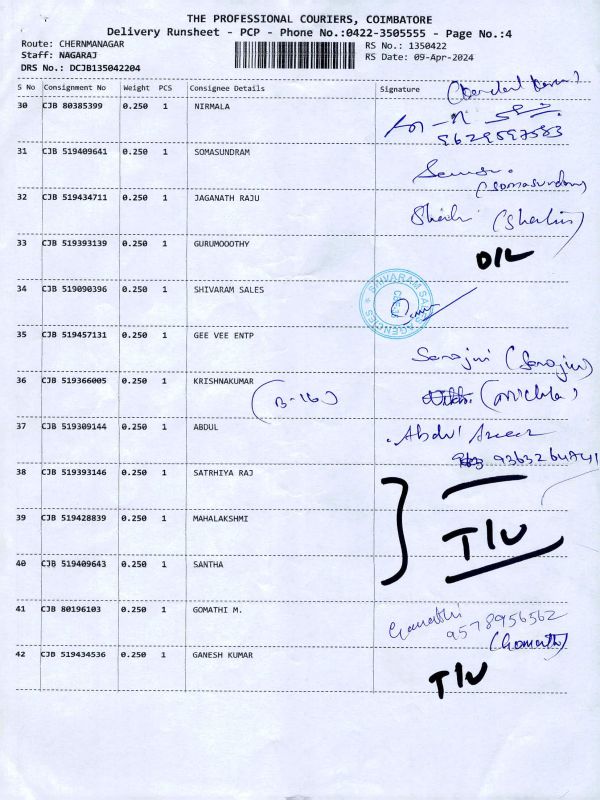 THE PROFESSIONAL COURIERS, COIMBATORE
Delivery Runsheet - PCP - Phone No.:0422-3505555 - Page No.:4
Route: CHERNMANAGAR
RS No.: 1350422
Staff: NAGARAJ
RS Date: 09-Apr-2024
DRS No.: DCJB135042204
S No Consignment No Weight PCS Consignee Details Signature
30 CJB 80385399 0.250 1 NIRMALA
9629597583
31 CJB 519409641 0.250 1 SOMASUNDRAM
(Somasundram)
32 CJB 519434711 0.250 1 JAGANATH RAJU
33 CJB 519393139 0.250 1 GURUMOOOTHY
D/L
34 CJB 519090396 0.250 1 SHIVARAM SALES
SHIVARAM SALES AGENCIES
35 CJB 519457131 0.250 1 GEE VEE ENTP
Sarojini (Sarojini)
36 CJB 519366005 0.250 1 KRISHNAKUMAR
(B-16)
37 CJB 519309144 0.250 1 ABDUL
Abdul Azeez
38 CJB 519393146 0.250 1 SATRHIYA RAJ
39 CJB 519428839 0.250 1 MAHALAKSHMI
T/U
40 CJB 519409643 0.250 1 SANTHA
41 CJB 80196103 0.250 1 GOMATHI M.
Gomathi
9578956562
(Gomathi)
42 CJB 519434536 0.250 1 GANESH KUMAR
T/U